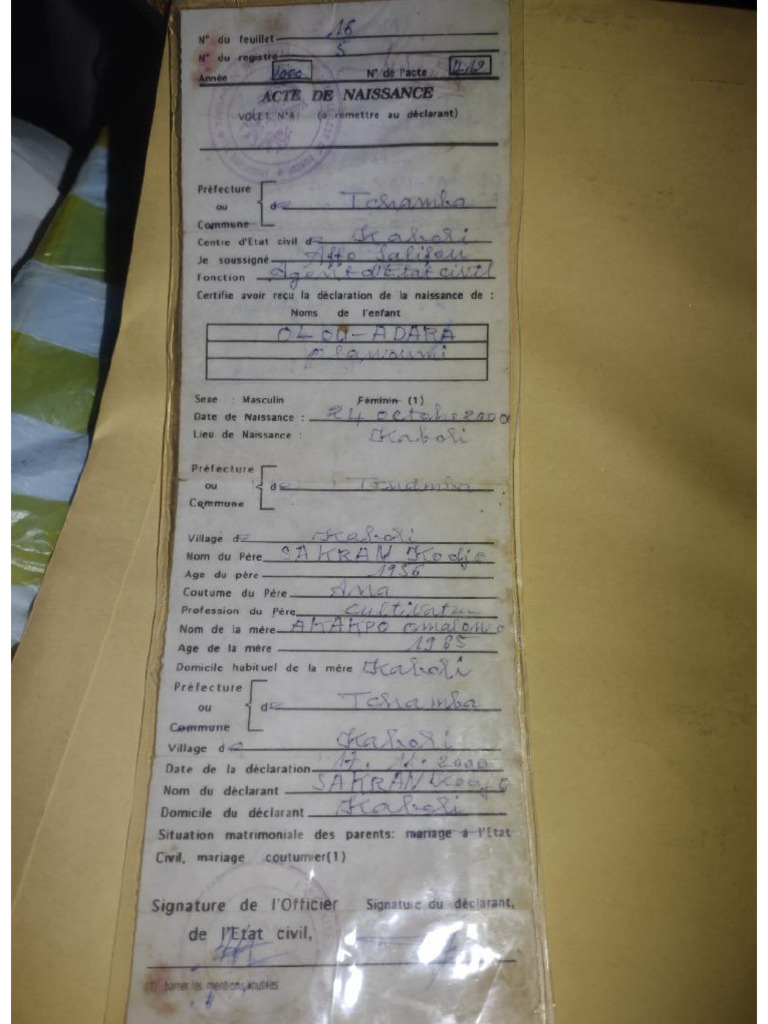 N° du feuillet 16
N° du registre 5
Année 2000 N° de l'acte 419
ACTE DE NAISSANCE
VOLET N°4 (à remettre au déclarant)
Préfecture
ou d Tchamba
Commune
Centre d'Etat civil de Kaboli
Je soussigné Affo Salifou
Fonction Agent d'Etat civil
Certifie avoir reçu la déclaration de la naissance de :
Noms de l'enfant
OLOU-ADARA
Olanoumi
Sexe : Masculin Féminin (1)
Date de Naissance : 24 octobre 2000
Lieu de Naissance : Kaboli
Préfecture
ou de Tchamba
Commune
Village de Kaboli
Nom du Père SAKRAN Kodjo
Age du père 1956
Coutume du Père Ana
Profession du Père Cultivateur
Nom de la mère AKAKPO
Age de la mère 1965
Domicile habituel de la mère Kaboli
Préfecture
ou de Tchamba
Commune
Village de Kaboli
Date de la déclaration 17. 11. 2000
Nom du déclarant SAKRAN Kodjo
Domicile du déclarant Kaboli
Situation matrimoniale des parents: mariage à l'Etat
Civil, mariage coutumier(1)
Signature de l'Officier Signature du déclarant,
de l'Etat civil,
(1) barrer les mentions inutiles